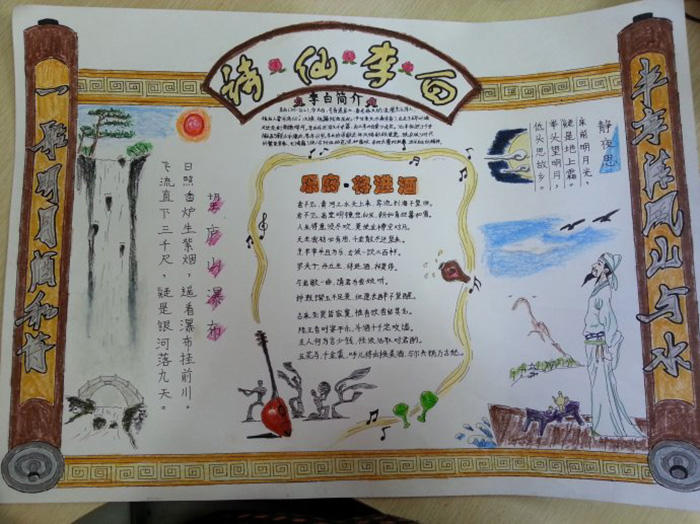 诗仙李白
李白简介
一壶明月酒和诗
半梦清风山与水
静夜思
床前明月光，
疑是地上霜。
举头望明月，
低头思故乡。
望庐山瀑布
日照香炉生紫烟，遥看瀑布挂前川。
飞流直下三千尺，疑是银河落九天。
乐府·将进酒
君不见，黄河之水天上来，奔流到海不复回。
君不见，高堂明镜悲白发，朝如青丝暮如雪。
人生得意须尽欢，莫使金樽空对月。
天生我材必有用，千金散尽还复来。
烹羊宰牛且为乐，会须一饮三百杯。
岑夫子，丹丘生，将进酒，杯莫停。
与君歌一曲，请君为我倾耳听。
钟鼓馔玉不足贵，但愿长醉不愿醒。
古来圣贤皆寂寞，惟有饮者留其名。
陈王昔时宴平乐，斗酒十千恣欢谑。
主人何为言少钱，径须沽取对君酌。
五花马，千金裘，呼儿将出换美酒，与尔同销万古愁。